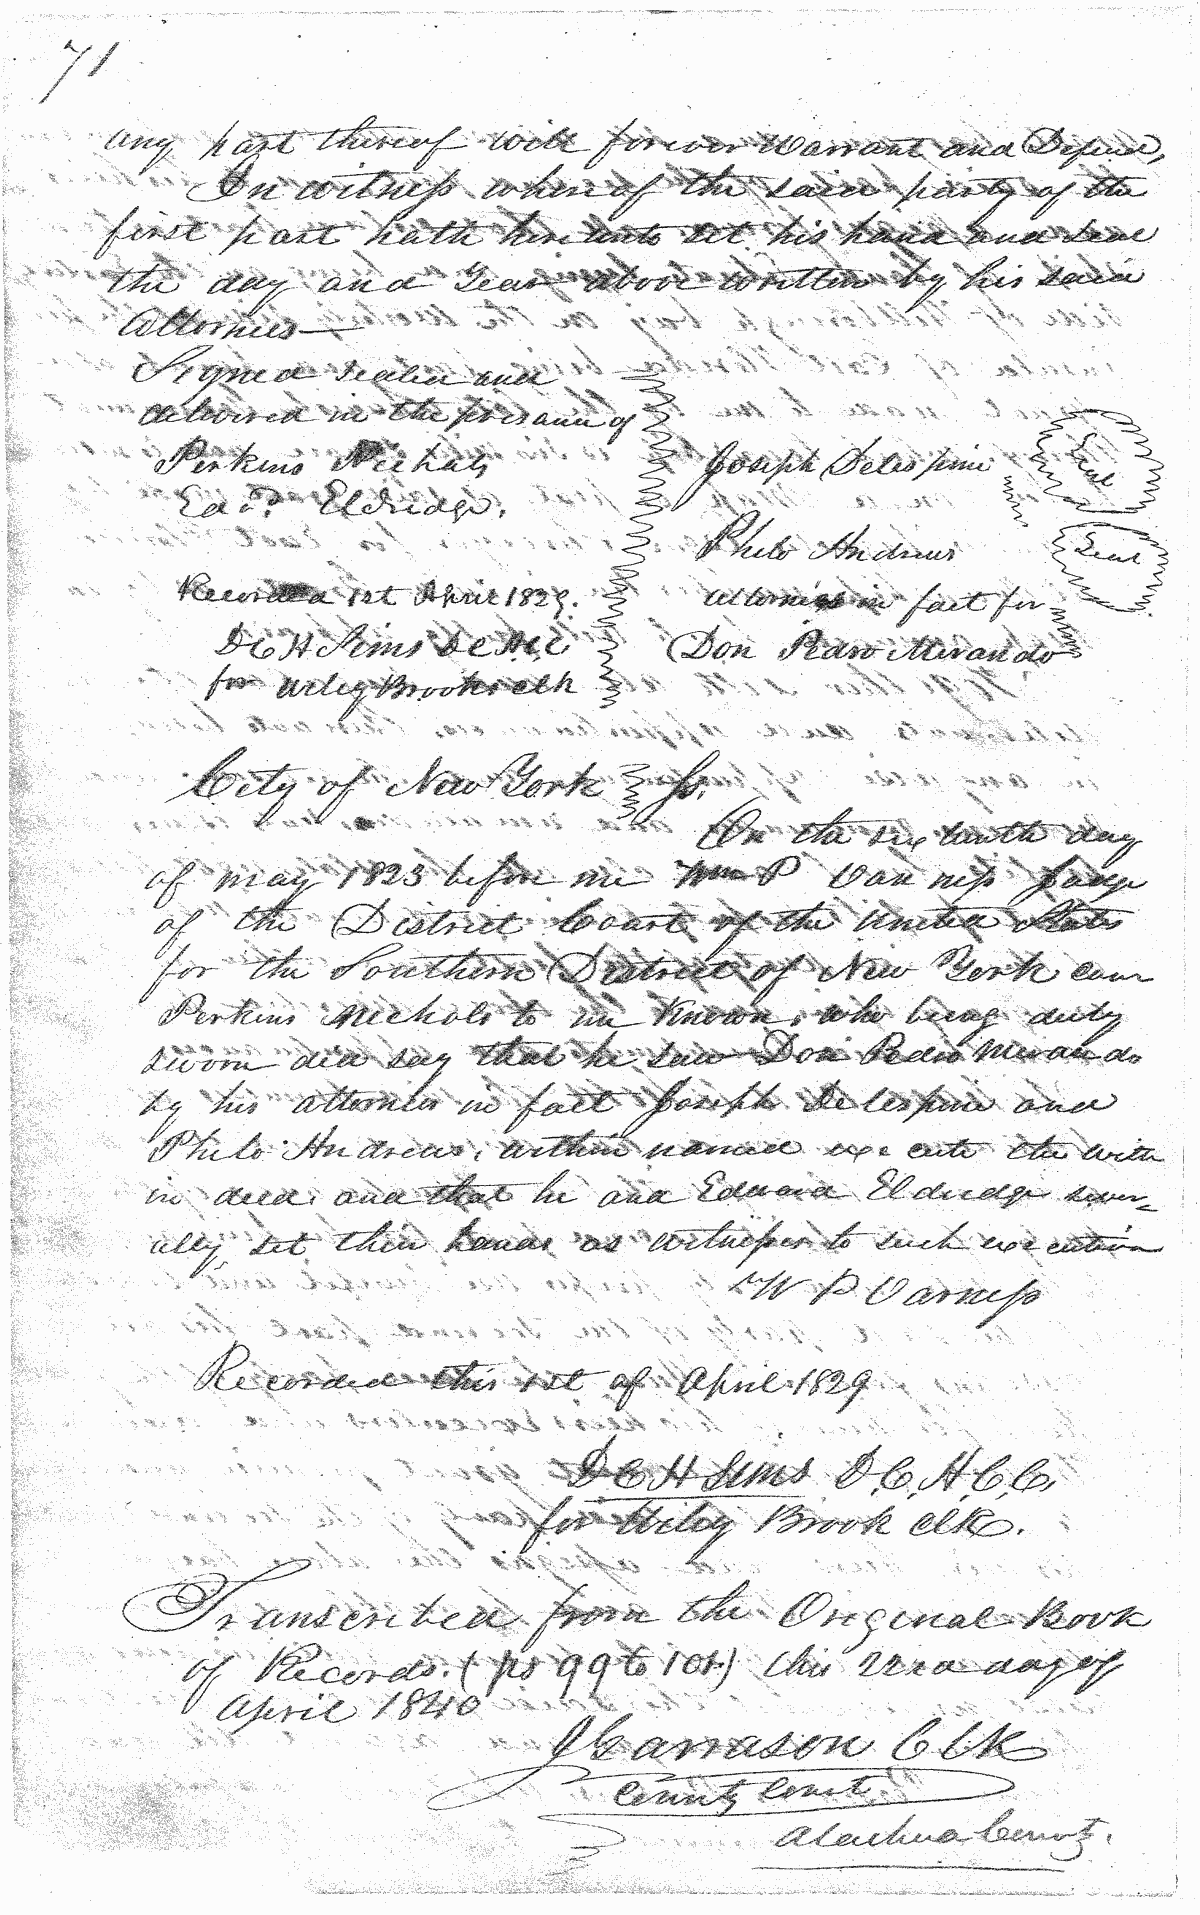 71
any part thereof will forever Warrant and Defend,
In witness whereof the said party of the
first part hath hereunto set his hand and seal
the day and Year above written by his said
Attornies—
Signed Sealed and
delivered in the presance of
Perkins Nichols
Edwd. Eldridge.
Joseph Delespine
Seal
Philo Andrews
Seal
Attornies in fact for
Don Pedro Mirando
Recorded 1st April 1829.
D C H Sims D C
for Wiley Brooks clk
City of New York } Ss.
On the sixteenth day
of may 1823 before me Wm P Van ness Judge
of the District Court of the United States
for the Southern District of New York came
Perkins Nichols to me Known, who being duly
sworn did say that he saw Don Pedro Mirando
by his attornies in fact Joseph Delespine and
Philo Andrews, within named execute the with
in deed and that he and Edward Eldridge sever-
ally, set their hands as witnesses to such execution
W P Vanness
Recorded this 1st of April 1829
D C H Sims D.C.A.C.C.
for Wiley Brook clk.
Transcribed from the Original Book
of Records. (ps 99 to 101) this 22nd day of
April 1840
J Garrason Clk
County Court
Alachua County.